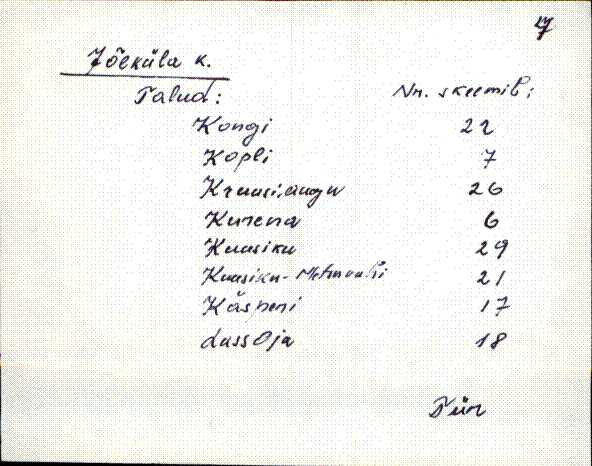 7
Jõeküla k.
Talud: Nr. skeemil:
Kongi 22
Kopli 7
Kruusiaugu 26
Kurena 6
Kuusiku 29
Kuusiku-Metsavahi 21
Käsperi 17
Lassoja 18
Tür